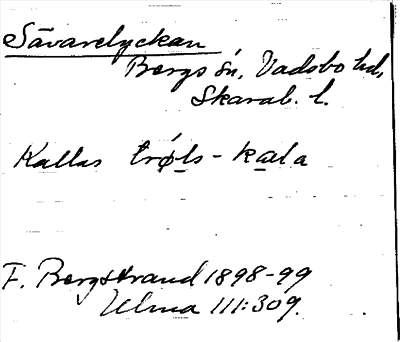 Sävarelyckan
Bergs sn, Vadsbo hd,
Skarab. l.
Kallas trǿls-kala
F. Bergstrand 1898-99
Ulma 111:309.